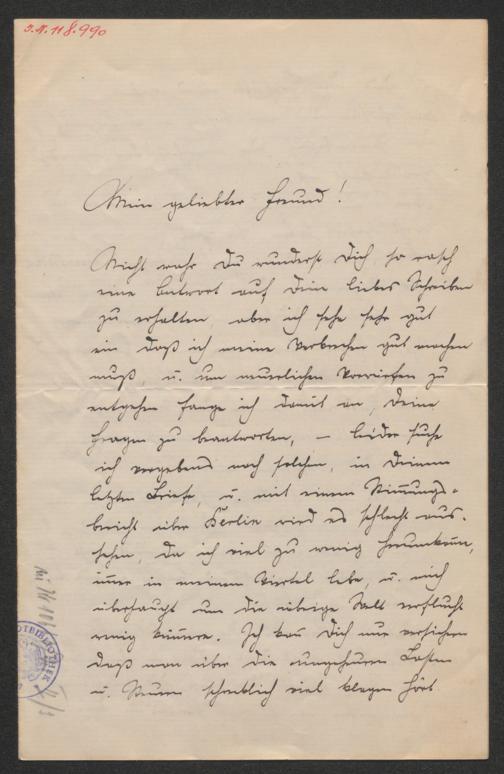 I.N. 118.990
Mein geliebter Freund!
Nicht wahr Du wunderst Dich, so rasch
eine Antwort auf Dein liebes Schreiben
zu erhalten, aber ich sehe sehr gut
ein daß ich meine Verbrechen gut machen
muß, u. um neuerlichen Vorwürfen zu
entgehen fange ich damit an, Deine
Fragen zu beantworten, — leider suche
ich vergebens nach solchen, in Deinem
letzten Briefe, u. mit einem Stimmungs-
bericht über Berlin wird es schlecht aus-
sehen, da ich viel zu wenig herumkomme,
immer in meinem Viertel lebe, u. mich
überhaupt um die übrige Welt verflucht
wenig kümmere. Ich kann Dich nur versichern
daß man über die ungeheuren Lasten
u. Steuern schrecklich viel klagen hört